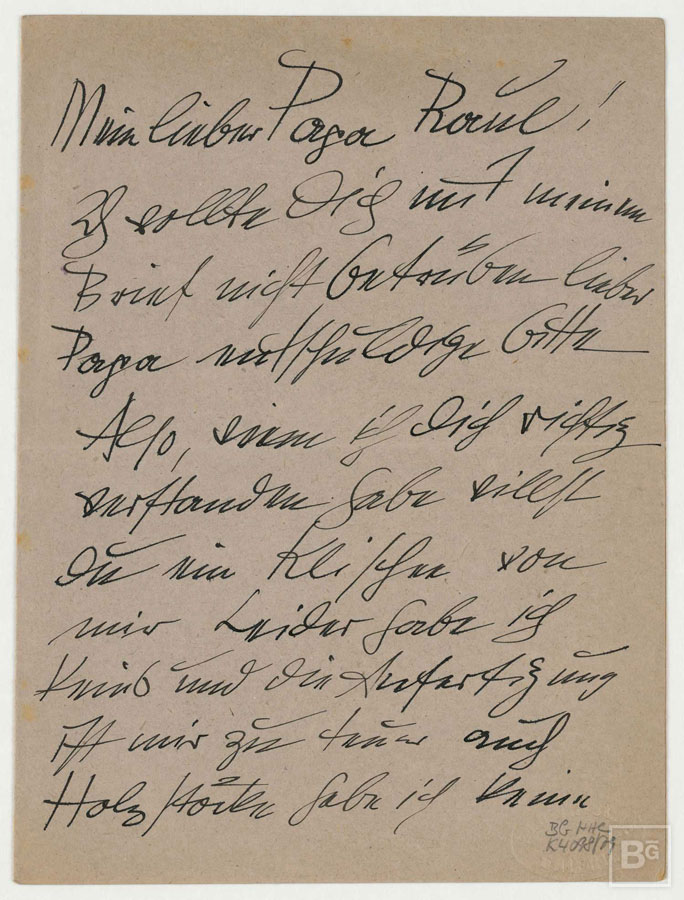 Mein lieber Papa Raoul!
Ich wollte Dich mit meinem
Brief nicht betrüben lieber
Papa entschuldige bitte
Also, wenn ich Dich richtig
verstanden habe willst
Du ein Klischee von
mir Leider habe ich
Keins und die Anfertigung
ist mir zu teuer auch
Holzstöcke habe ich keine
BG HHC
BG